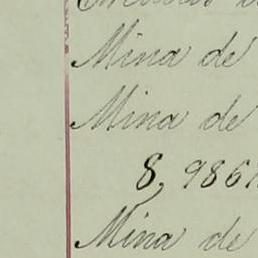 Mina de
Mina de
8,986
Mina de